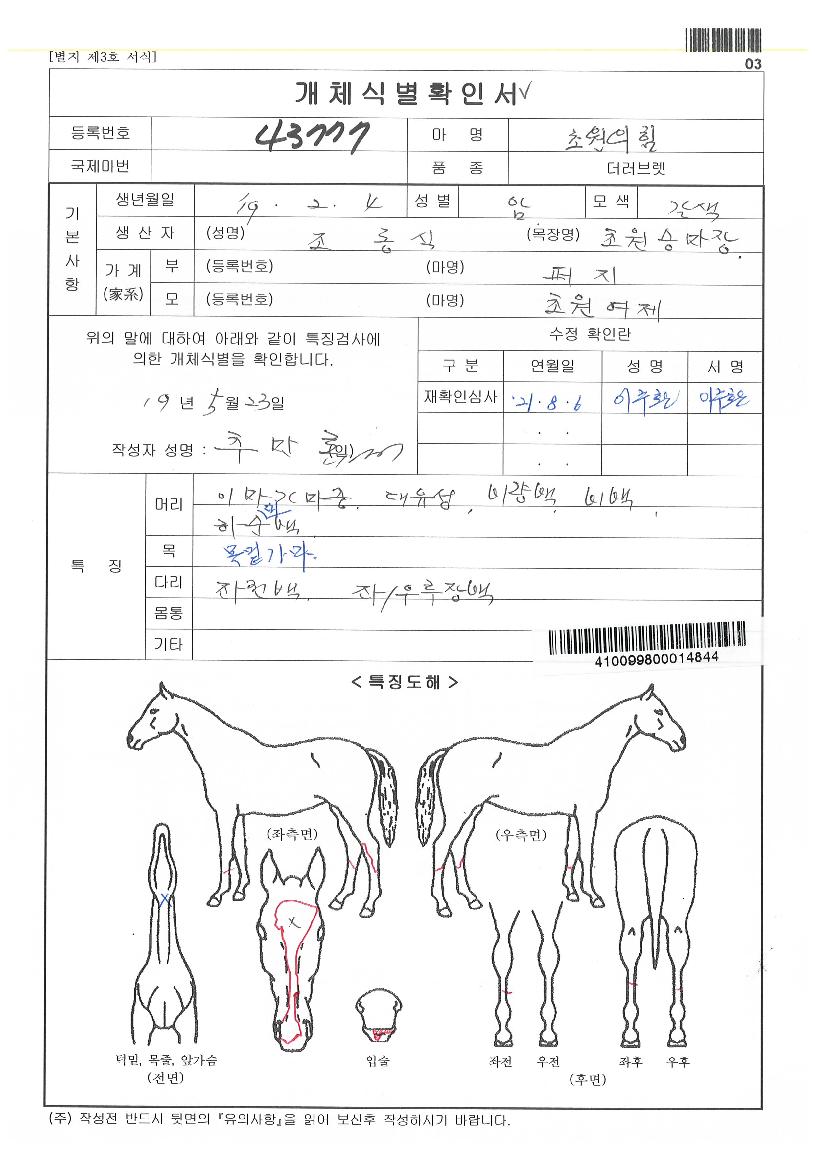 [별지 제3호 서식]
03
개체식별확인서√
등록번호 43777 마 명 초원의힘
국제마번 품 종 더러브렛
기본사항
생년월일 19 . 2 . 4 성별 암 모색 갈색
생 산 자 (성명) 조 룡 식 (목장명) 초원승마장.
가 계 (家系)
부 (등록번호) (마명) 퍼 지
모 (등록번호) (마명) 초원여제
위의 말에 대하여 아래와 같이 특징검사에
의한 개체식별을 확인합니다.
19 년 5월 23일
작성자 성명 :
수정 확인란
구 분 연월일 성 명 서 명
재확인심사 '21 . 8 . 6
. .
. .
특 징
머리 대유성, 비량백, 비백,
하순백
목
다리 좌전백, 좌/우후장백
몸통
기타
410099800014844
< 특징도해 >
(좌측면)
(우측면)
x
x
턱밑, 목줄, 앞가슴
(전면)
입술
좌전 우전 좌후 우후
(후면)
(주) 작성전 반드시 뒷면의 『유의사항』을 읽어 보신후 작성하시기 바랍니다.